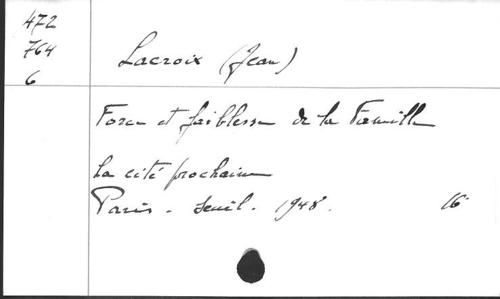 472
764
6
Lacroix (Jean)
Force et faiblesse de la Famille
La cité prochaine
Paris - Seuil - 1948. 16°